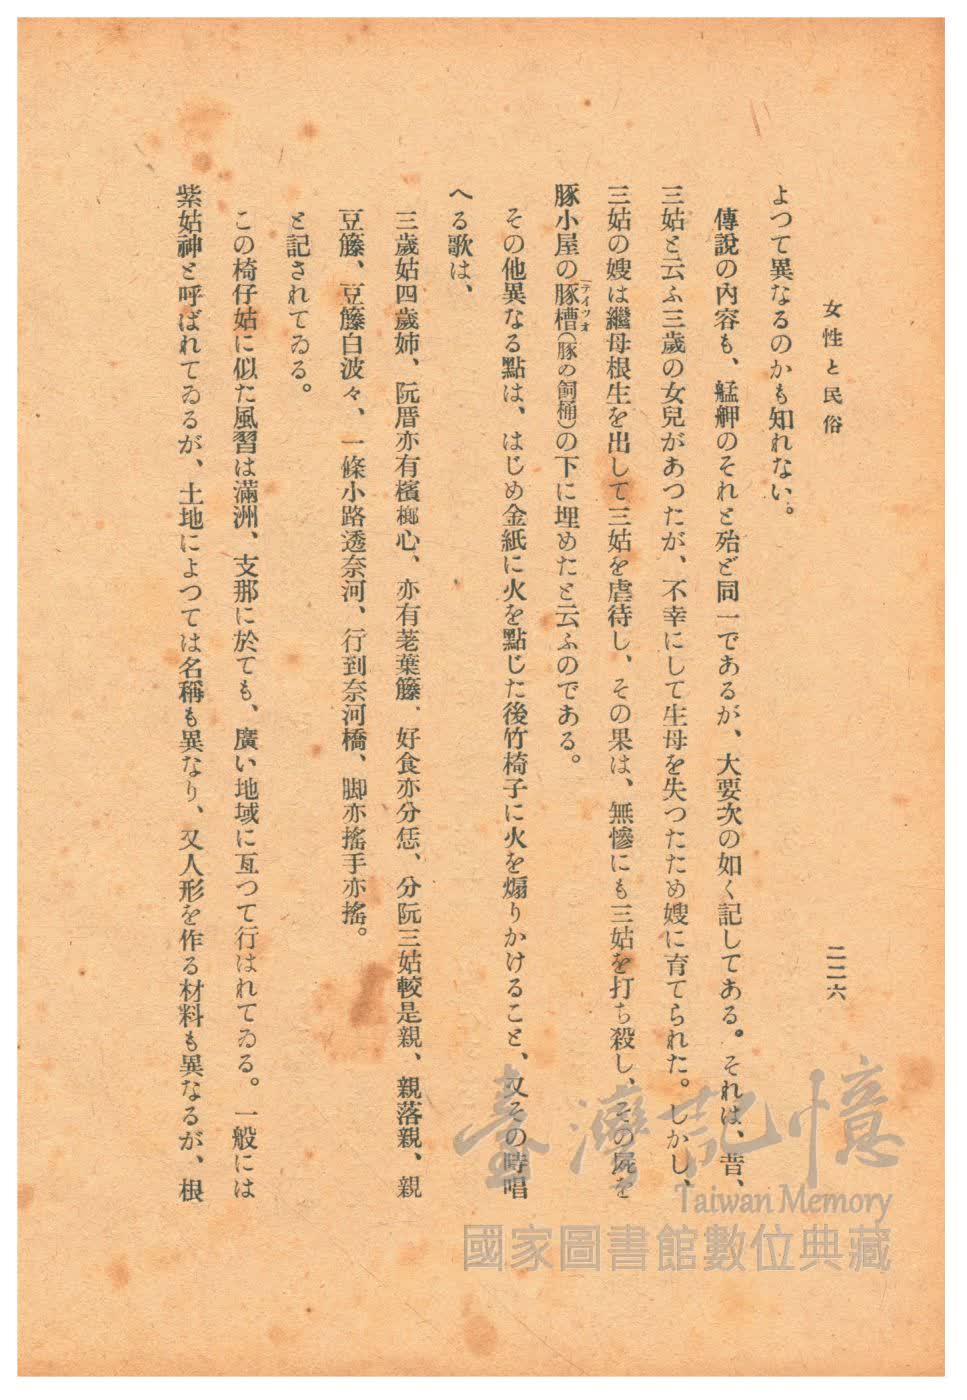 女性と民俗
二二六
よつて異なるのかも知れない。
傳說の內容も、艋舺のそれと殆ど同一であるが、大要次の如く記してある。それは、昔、
三姑と云ふ三歲の女兒があつたが、不幸にして生母を失つたため嫂に育てられた。しかし、
三姑の嫂は繼母根生を出して三姑を虐待し、その果は、無慘にも三姑を打ち殺し、その屍を
豚小屋の豚槽(豚の飼桶)の下に埋めたと云ふのである。
その他異なる點は、はじめ金紙に火を點じた後竹椅子に火を煽りかけること、又その時唱
へる歌は、
三歲姑四歲姉、阮厝亦有檳榔心、亦有荖葉籐、好食亦分恁、分阮三姑較是親、親落親、親
豆籐、豆籐白波々、一條小路透奈河、行到奈河橋、脚亦搖手亦搖。
と記されてゐる。
この椅仔姑に似た風習は滿洲、支那に於ても、廣い地域に亙つて行はれてゐる。一般には
紫姑神と呼ばれてゐるが、土地によつては名稱も異なり、又人形を作る材料も異なるが、根
臺灣記憶
Taiwan Memory
國家圖書館數位典藏